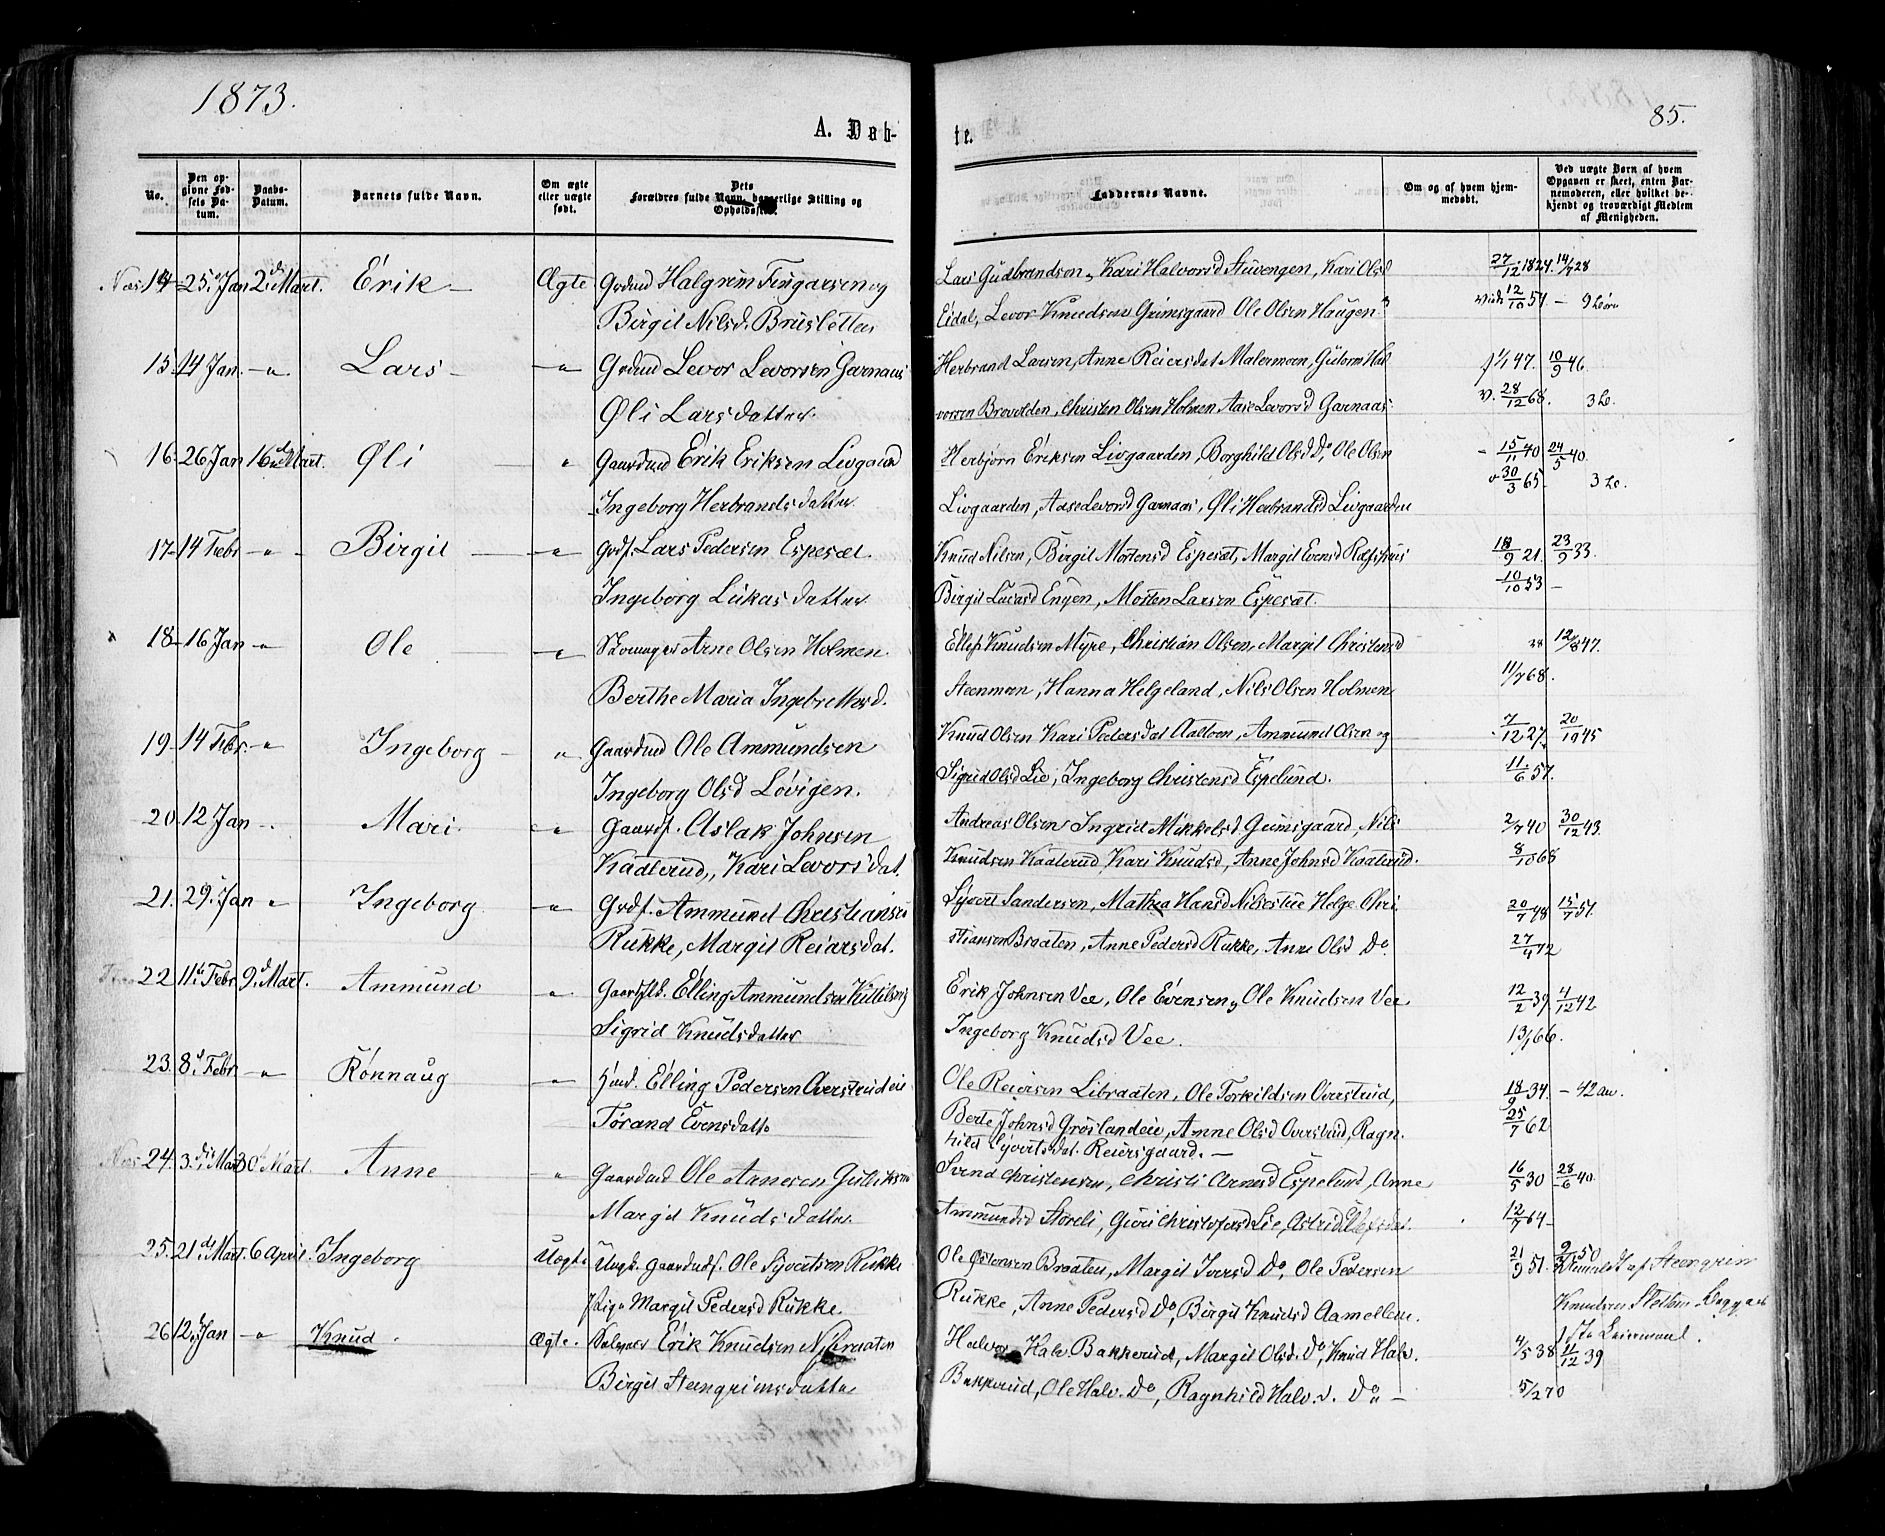 1873.
85.
A. Døb-
te.
No.
Den opgivne Fødsels Datum.
Daabs-Datum.
Barnets fulde Navn.
Om ægte eller uægte født.
Forældres fulde Navn, borgerlige Stilling og Opholdssted.
Faddernes Navne.
Om og af hvem hjemmedøbt.
Ved uægte Børn af hvem Opgaven er skeet, enten Barnemoderen, eller hvilket bekjendt og troværdigt Medlem af Menigheden.
Næs 14 25 Jan 2 Mart. Erik Ægte Grdmd Halgrim Fingarsen og
Birgit Nilsd. Brusletten
Lars Gudbrandsen, Kari Halvorsd Stuvengen, Kari Olsd 27/12 1824. 14/7 28
Eidal, Levor Knudsen Grimsgaard Ole Olsen Haugen 12/10 57 - 9
15 14 Jan. - " Lars - " Grdmd Levor Levorsen Garnaas
Øli Larsdatter
Herbrand Larsen, Anne Reiersdat Malermoen, Guttorm Hal 47. 10/9 46
vorsen Brovolden, Christen Olsen Holmen, Aase Levorsd Garnaas. v. 28/12 68. 3
16 26 Jan 16 Mart. Øli " Gaardmd Erik Eriksen Livgaard
Ingeborg Herbrandsdatter
Herbjørn Eriksen Livgaarden, Borghild Olsd Do, Ole Olsen 15/11 40 24/5 40.
Livgaarden, Aase Levorsd Garnaas, Øli Herbrandsd Livgaarden 30/3 65 3
17 14 Febr - " - Birgit - " Grdf. Lars Pedersen Espesæt.
Ingeborg Lukasdatter
Knud Nilsen, Birgit Mortensd Espesæt, Margit Evensd 18/9 21. 23/9 33.
Birgit Lucasd Engen, Morten Larsen Espesæt. 10/10 53 -
18 16 Jan - " Ole - " Skomager Arne Olsen Holmen
Berthe Maria Ingebretsd.
Ellef Knudsen Myre, Christian Olsen, Margit Christensd 38 12/8 47.
Steenmoen, Hanna Helgeland, Nils Olsen Holmen 11/7 68.
19 14 Febr. - " Ingeborg - " Gaardmd Ole Ammundsen
Ingeborg Olsd Løvigen.
Knud Olsen Kari Pedersdat Aaltoen, Ammund Olsen og 7/12 27 20/10 45
Sigrid Olsd Lie, Ingeborg Christensd Espelund. 11/6 57.
20. 12 Jan - " Mari " Gaardf. Aslak Johnsen
Kaalerud, Kari Levorsdat.
Andreas Olsen Ingrid Mikkelsd Grimsgaard, Nils 2/7 40 30/12 43.
Knudsen Kaalerud, Kari Knudsd, Anne Johnsd Kaalerud. 8/10 68
21. 29 Jan " Ingeborg " Grdf. Ammund Christiansen
Rukke, Margit Reiarsdat.
Syvert Sandersen, Mathea Hansd Nilsestue Helge Chri 20/7 48 15/7 51.
stiansen Braaten, Anne Pedersd Rukke, Anne Olsd Do 27/4 72
22 11 Febr 9 Mart. Ammund " Elling Ammundsen
Sigrid Knudsdatter
Erik Johnsen Vee, Ole Evensen, Ole Knudsen Vee 12/2 39. 4/12 42
Ingeborg Knudsd Vee. 13/1 66.
23. 8 Febr - " Rønnaug " Elling Pedersen Overstrudeie
Torand Evensdatte
Ole Reiersen Libraaten, Ole Torkildsen Overstrud, 18/9 34. - 42
Berte Johnsd Grøslandeie, Anne Olsd Overstrud, Ragn. 25/7 62
hild Syvertsdat. Reiersgaard. -
24. 3 Mart 30 Mart. Anne " Gaardmd Ole Arnesen
Margit Knudsdatter
Svend Christensen, Christi Arnesd Espelund, Anne 16/5 30 28/6 40.
Ammundsd Storeli, Guri Christofersd Lie, Astrid 12/7 64 -
25. 21 Mart. 6 April. Ingeborg Uægte Ungk. Gaardmdf. Ole Syvertsen Rukke
Pige Margit Pedersd Rukke.
Ole Østensen Braaten, Margit Iversd Do, Ole Pedersen 21/9 51. 50
Rukke, Anne Pedersd Do, Birgit Knudsd Aamellem.
Anmeldt af Steengrim
Knudsen
1ste Leiermaal.
26 12 Jan - " Knud. Ægte. Erik Knudsen Nybraaten
Birgit Steengrimsdatter
Halvor Halv. Bakkerud, Margit Olsd. Do, Knud Halv. 4/5 38 11/12 39
Bakkerud, Ole Halv. Do, Ragnhild Halv. d. Do - 5/2 70